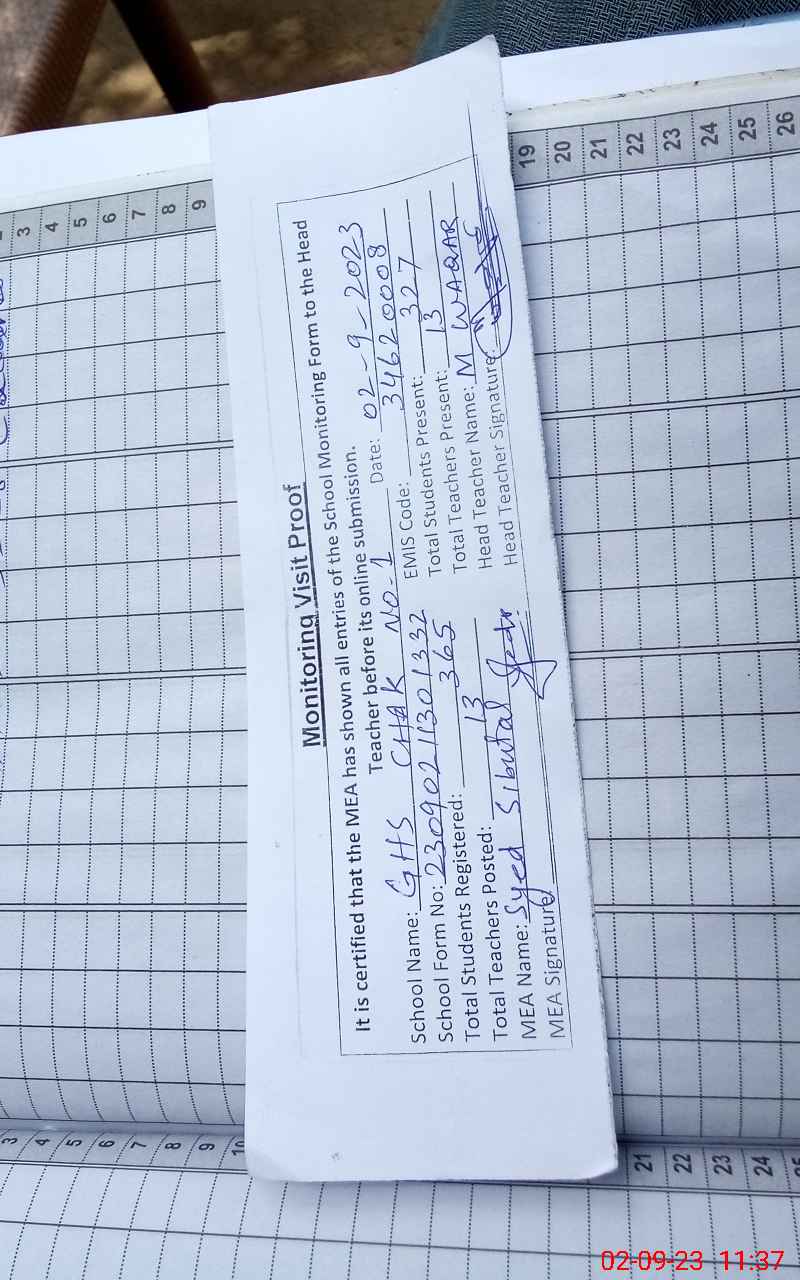 Monitoring Visit Proof
It is certified that the MEA has shown all entries of the School Monitoring Form to the Head
Teacher before its online submission.
School Name: GHS CHAK NO-1 Date: 02-9-2023
School Form No: 23090211301332 EMIS Code: 34620008
Total Students Registered: 365 Total Students Present: 327
Total Teachers Posted: 13 Total Teachers Present: 13
MEA Name: Syed Sibutal Head Teacher Name: M WAQAR
MEA Signature: Head Teacher Signature:
3
4
5
6
7
8
9
19
20
21
22
23
24
25
26
3
4
5
6
7
8
9
10
21
22
23
24
25
02-09-23 11:37